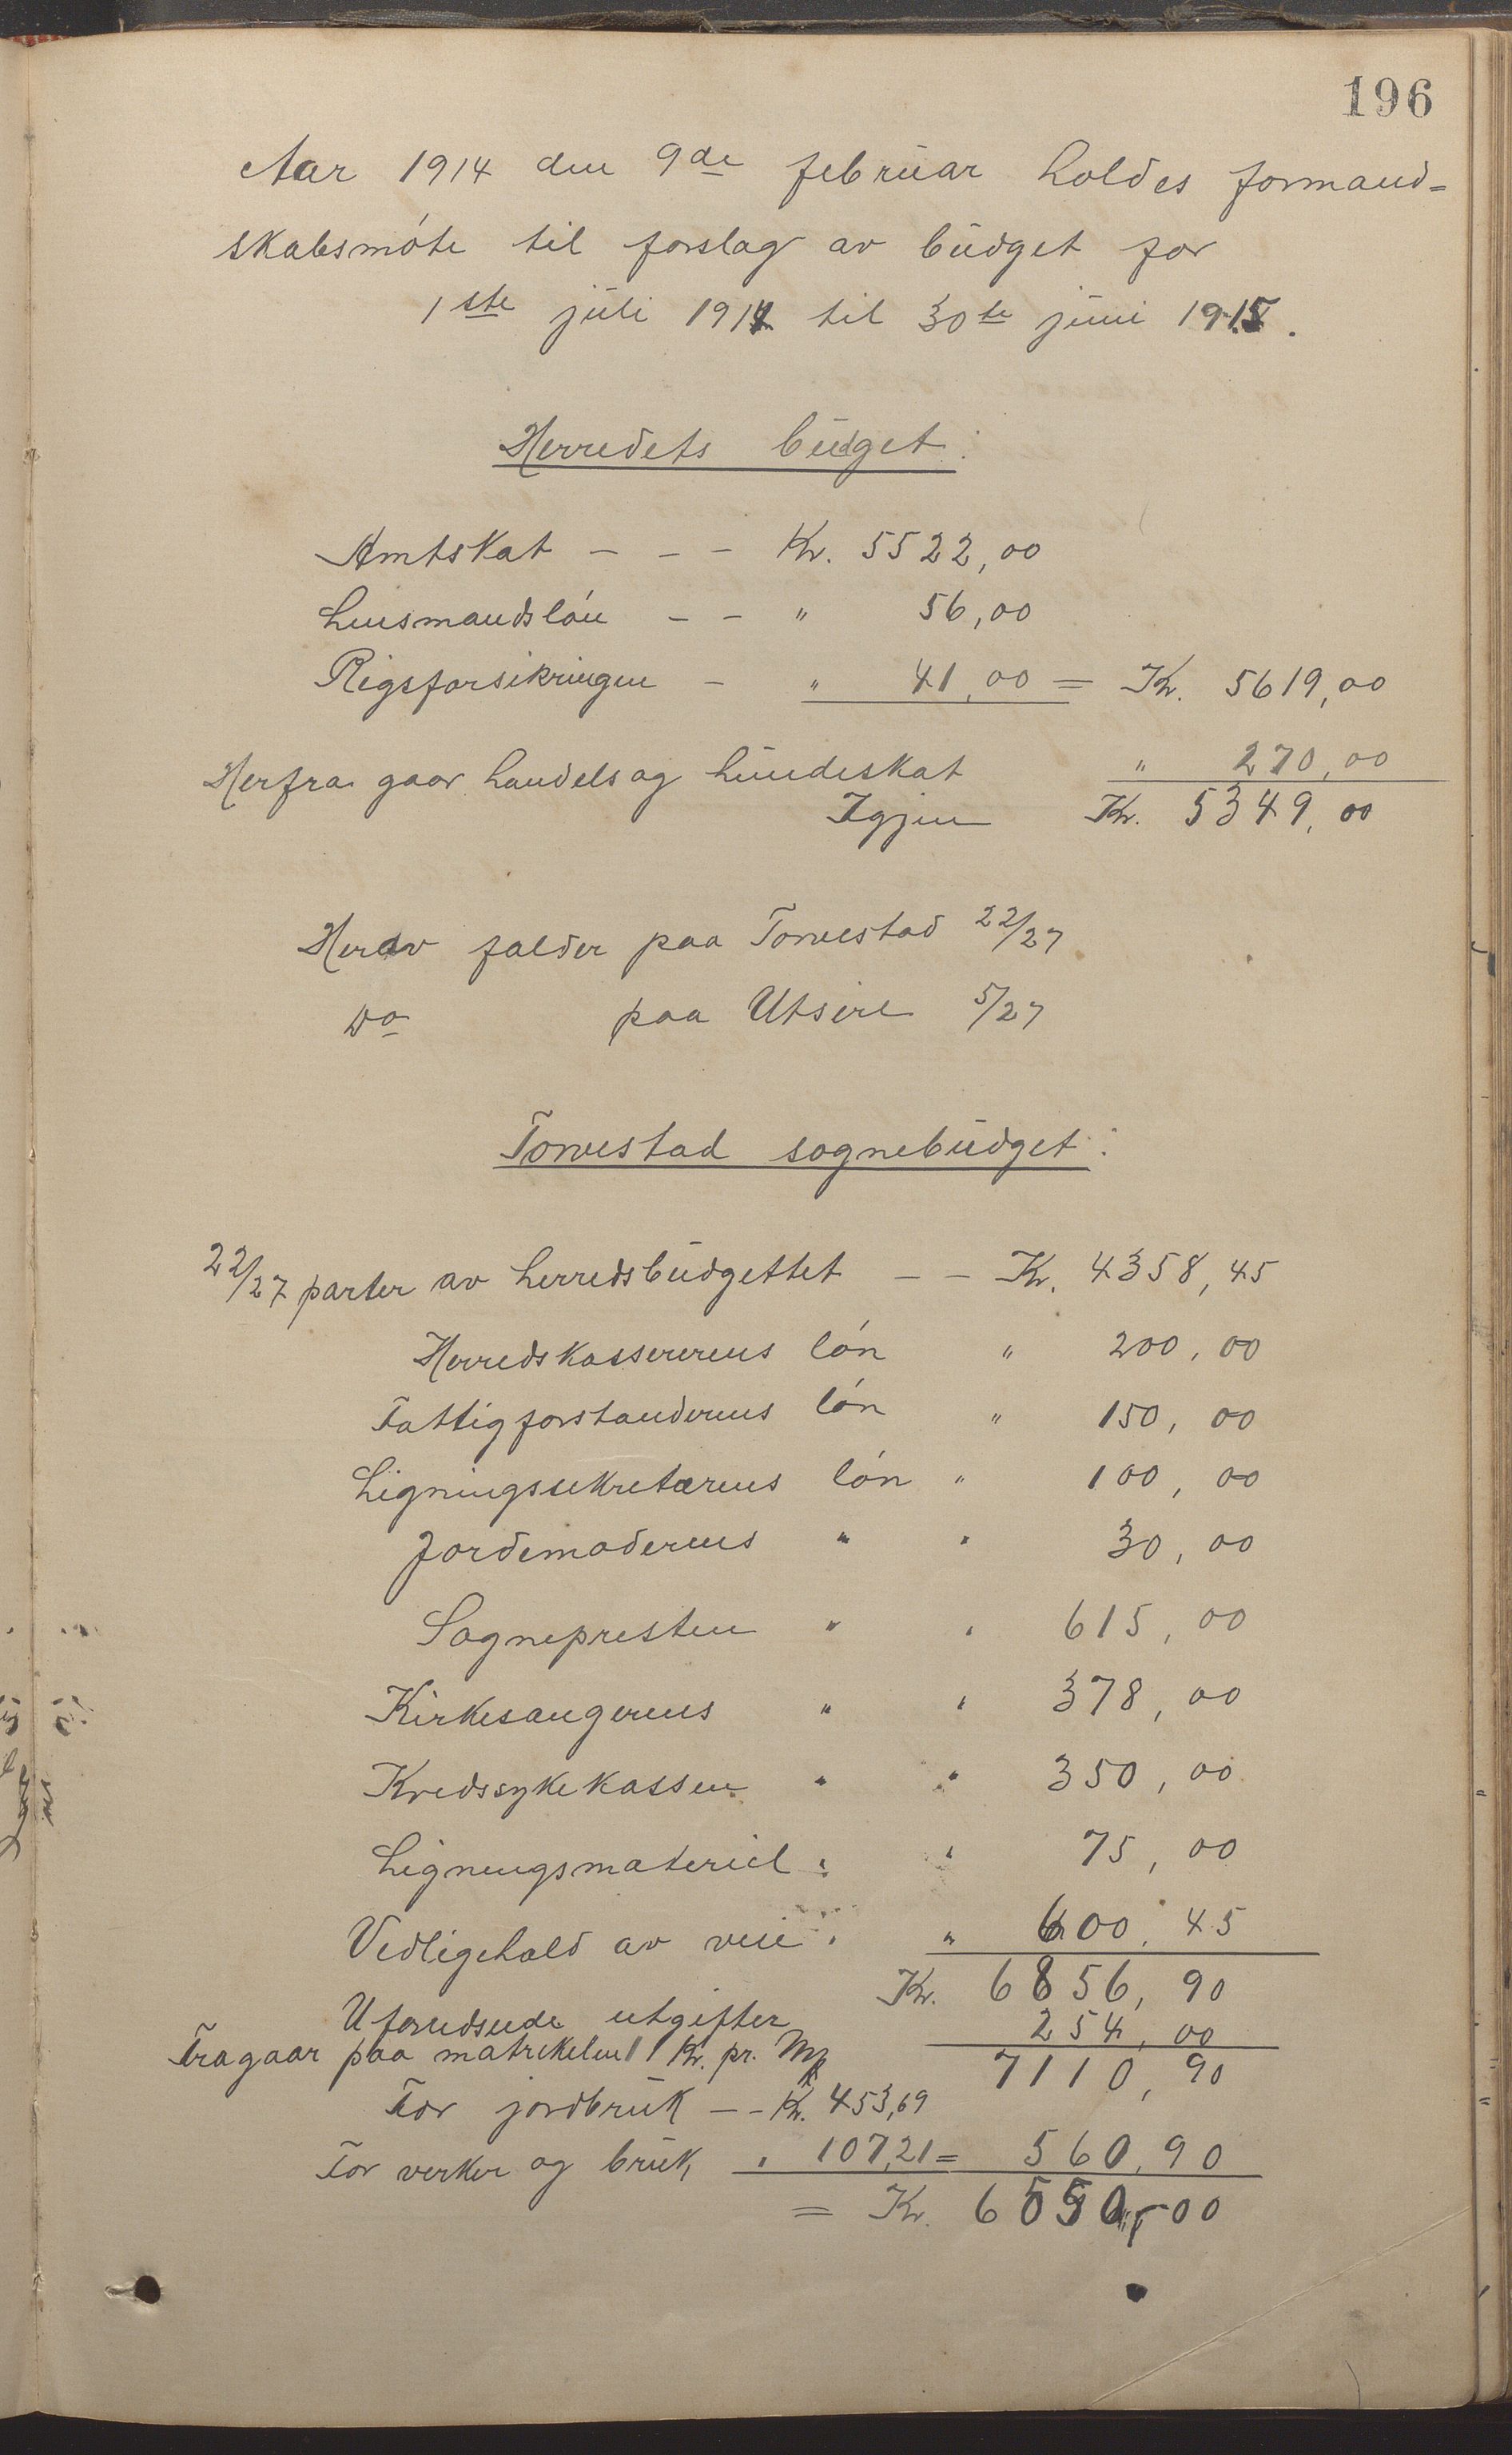 196
Aar 1914 den 9de februar holdes formand=
skabsmóte til forslag av budget for
1ste juli 1914 til 30te juni 1915.
Herredets budget:
Amtskat - - - Kr. 5522,00
Lensmandslón - - " 56,00
Rigsforsikringen - " 41,00 = Kr. 5619,00
Herfra gaar handels og hundeskat " 270,00
Igjen Kr. 5349,00
Herav falder paa Torvestad 22/27
Do paa Utsire 5/27
Torvestad sognebudget:
22/27 parter av herredsbudgettet - - Kr. 4358,45
Herredskassererens lón " 200,00
Fattigforstanderens lón " 150,00
Ligningssekretærens lón " 100,00
Jordemoderens " " 30,00
Sognepresten " " 615,00
Kirkesangerens " " 378,00
Kredssykekassen " " 350,00
Ligningsmateriel " " 75,00
Vedligehold av veie " " 600,45
Kr. 6856,90
Uforudseede utgifter 254,00
Fragaar paa matrikelen 1 Kr. pr. Mk 7110,90
For jordbruk - - Kr. 453,69
For verker og bruk " 107,21 = 560,90
= Kr. 6550,00